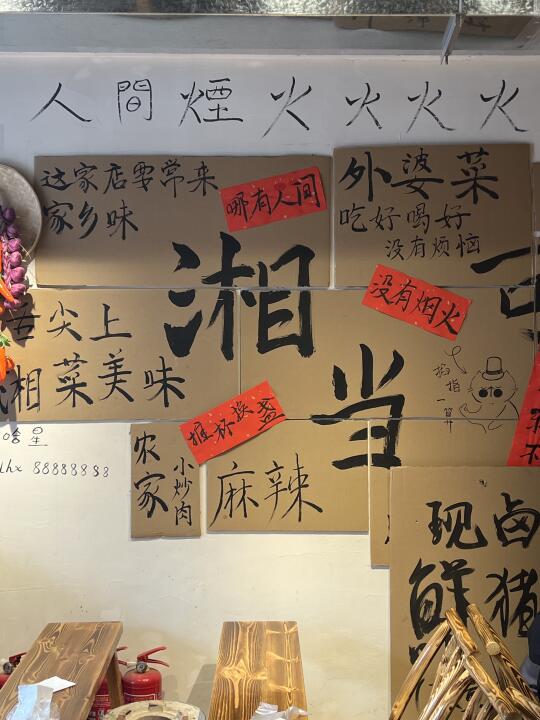 人間煙火火火火
这家店要常来
家乡味
哪有人间
外婆菜
吃好喝好
没有烦恼
湘
没有烟火
舌尖上
湘菜美味
当
推杯换盏
拇指一算
哈星
lhx 88888888
农家
小炒肉
麻辣
现
鲜
卤
猪